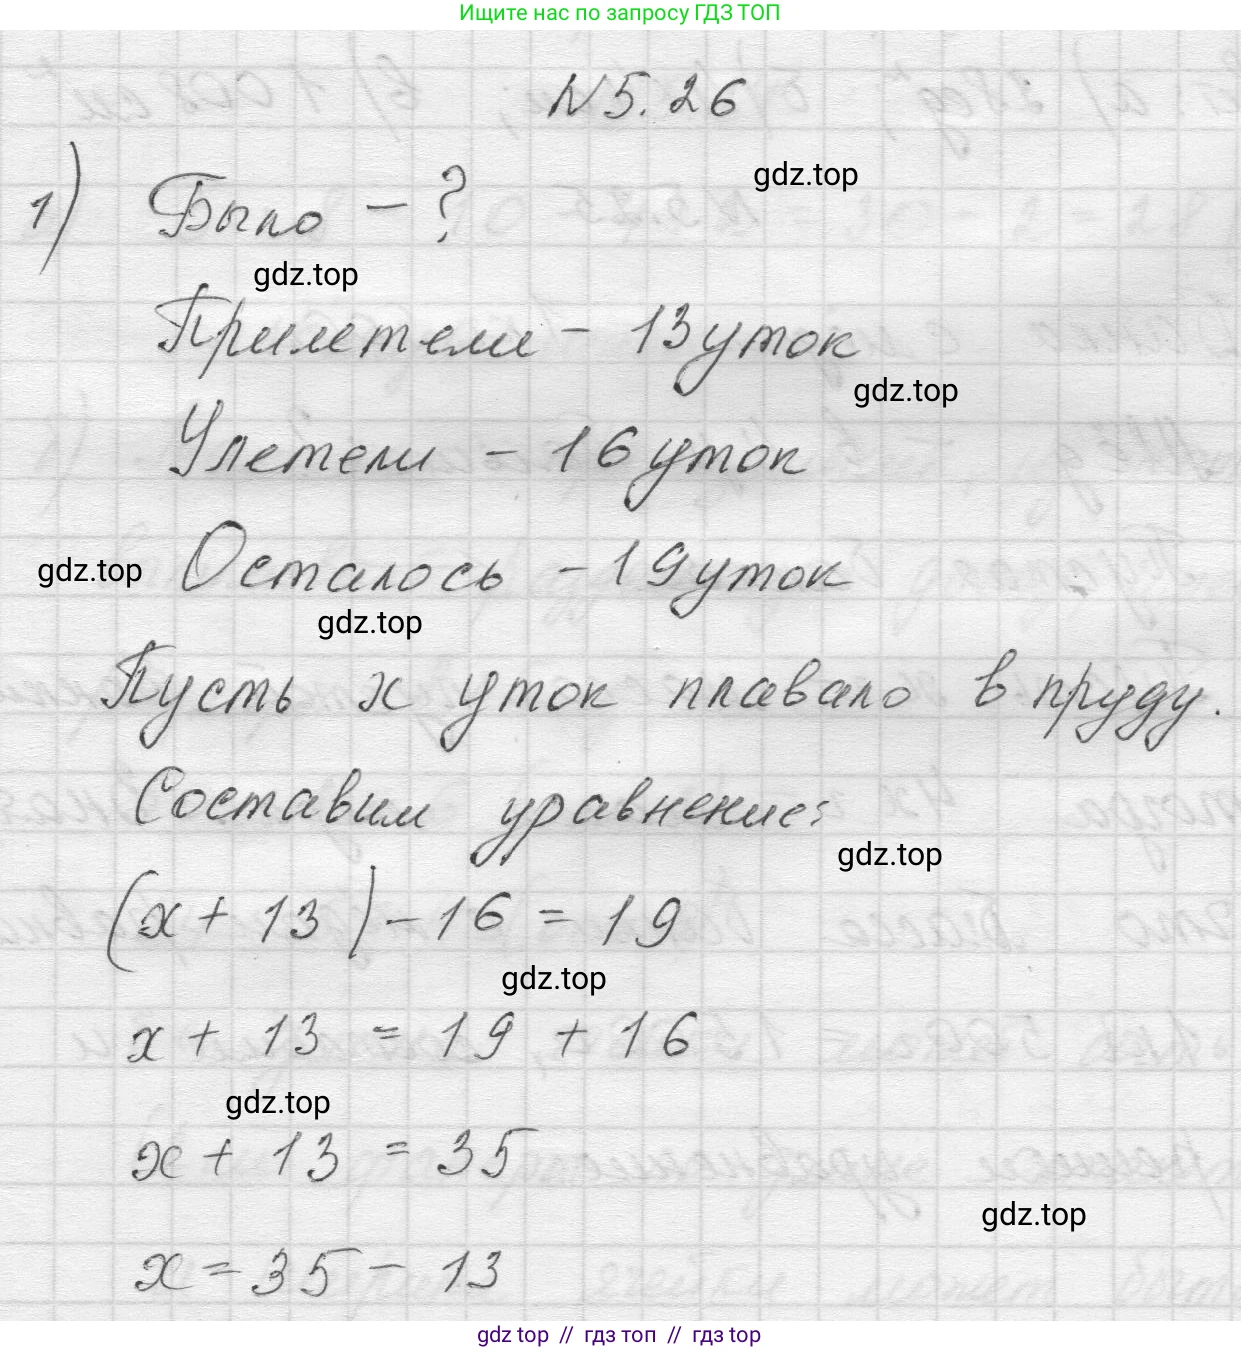 Ищите нас по запросу ГДЗ ТОП
N 5.26
gdz.top
1) Было – ?
gdz.top
Прилетели – 13 уток
gdz.top
Улетели – 16 уток
Осталось – 19 уток
gdz.top
gdz.top
Пусть x уток плавало в пруду.
Составим уравнение:
gdz.top
(x + 13) – 16 = 19
gdz.top
x + 13 = 19 + 16
gdz.top
x + 13 = 35
gdz.top
x = 35 – 13
gdz top // гдз топ // гдз top